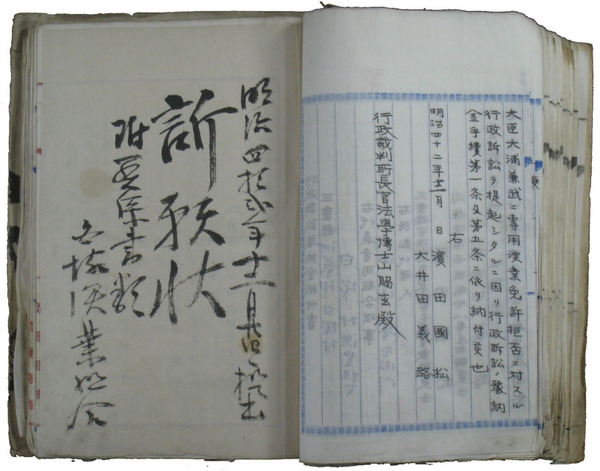 大臣大浦兼武ニ専用漁業免許拒否ニ対スル
行政訴訟ヲ提起シタルニ因リ行政訴訟ノ豫納
金手續第一条及第五条ニ依リ納付候也
右
濱田國松
大井田義路
明治四十二年十二月 日
行政裁判所長官法學博士山脇玄殿
明治四拾弐年十二月
訴願状
附要保書類
漁業組合